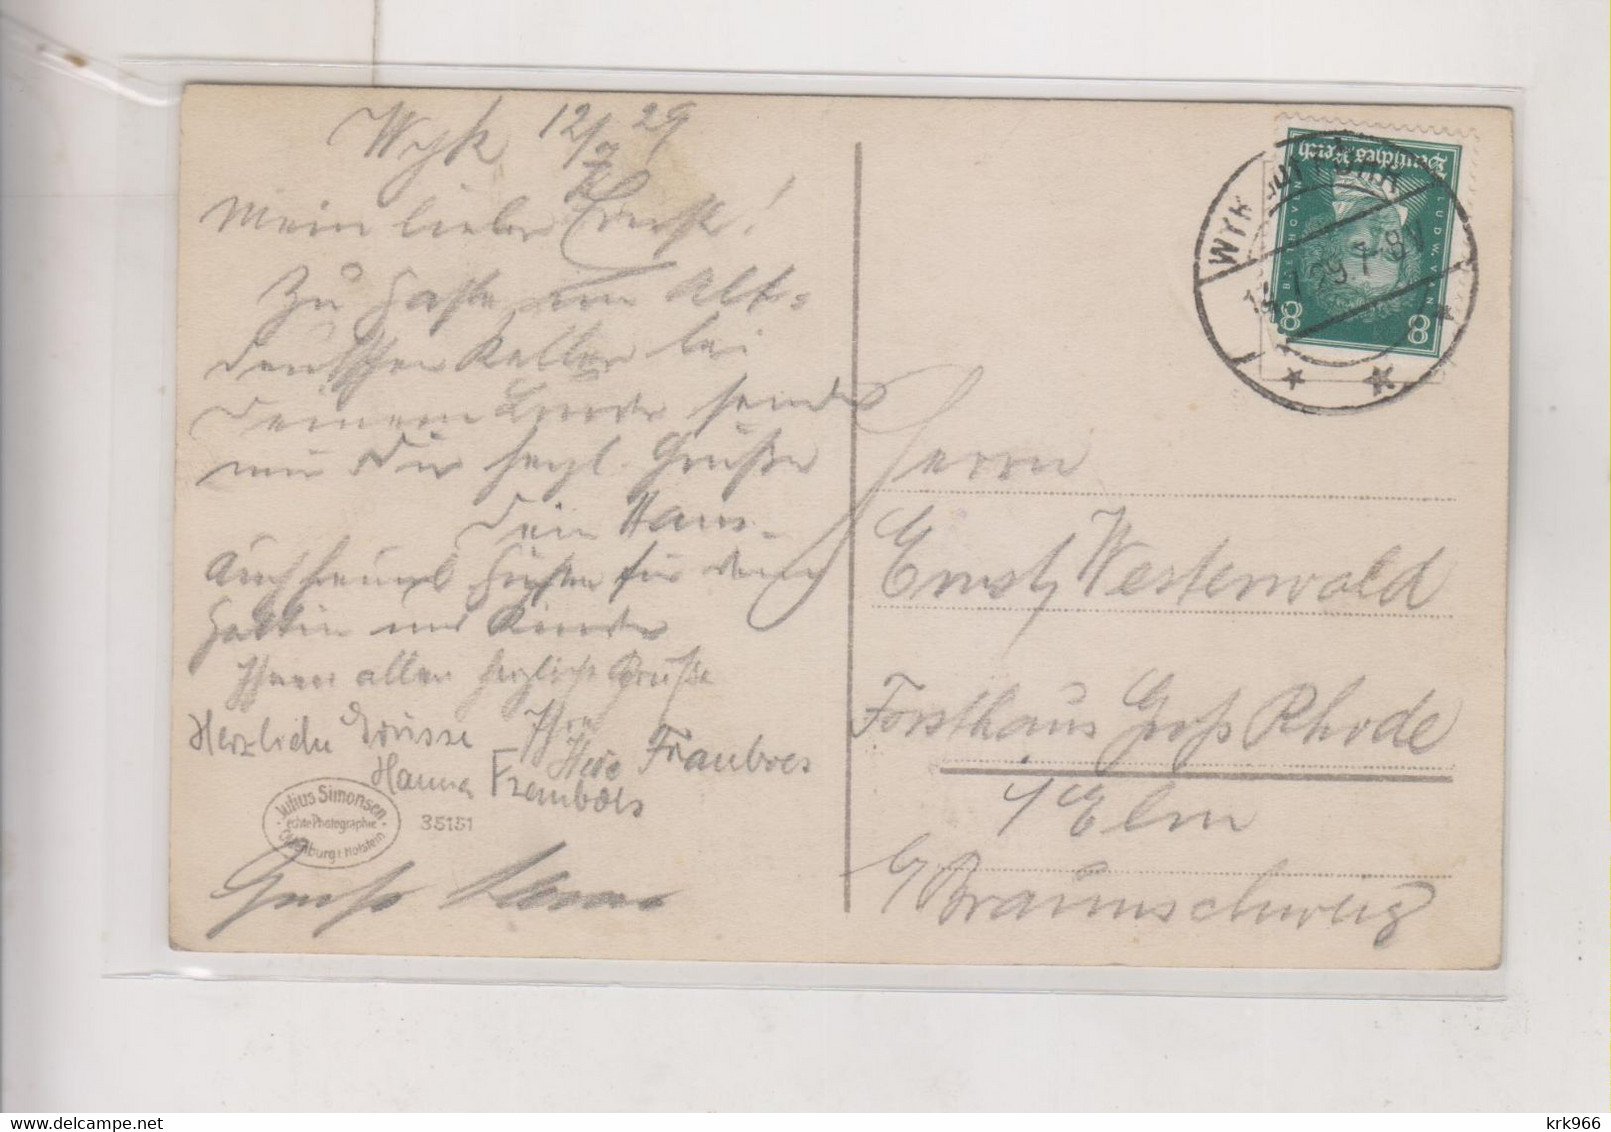 Wyk 12/7 29
Mein lieber Ernst!
Zu Gaste im Alt-
deutschen Keller bei
Deinem Bruder sende
nur Dir herzl. Grüße
Dein Hans.
Auch Grüße für Deine
Gattin und Kinder
Ihnen allen herzliche Grüße
Herzliche Grüsse
Hanna
Gruß
Julius Simonsen
echte Photographie
Oldenburg i. Holstein
35151
Deutsches Reich
LUDWIG VAN
BEETHOVEN
8 8
WYK auf FÖHR
7.29.7-8V
Herrn
Ernst Westerwald
Forsthaus Groß Rhode
i/Elm
b/Braunschweig
krk966